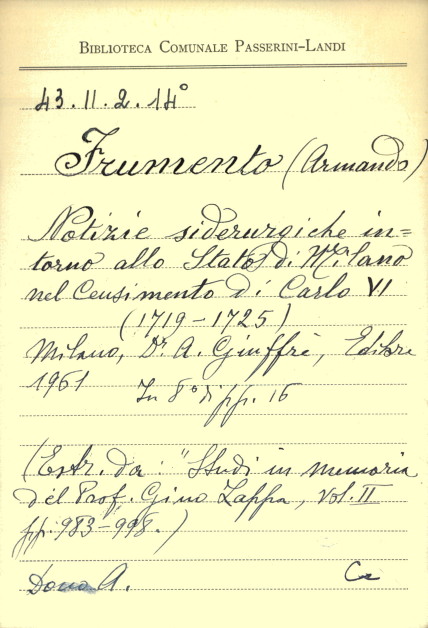 BIBLIOTECA COMUNALE PASSERINI-LANDI
43.II.2.14°
Frumento (Armando)
Notizie siderurgiche in=
torno allo Stato di Milano
nel Censimento di Carlo VI
(1719-1725)
Milano, Dr. A. Giuffrè, Editore
1961 In 8° di pp. 16
(Estr. da: "Studi in memoria
del Prof. Gino Zappa, vol. II
pp. 983-998.)
Dono A.